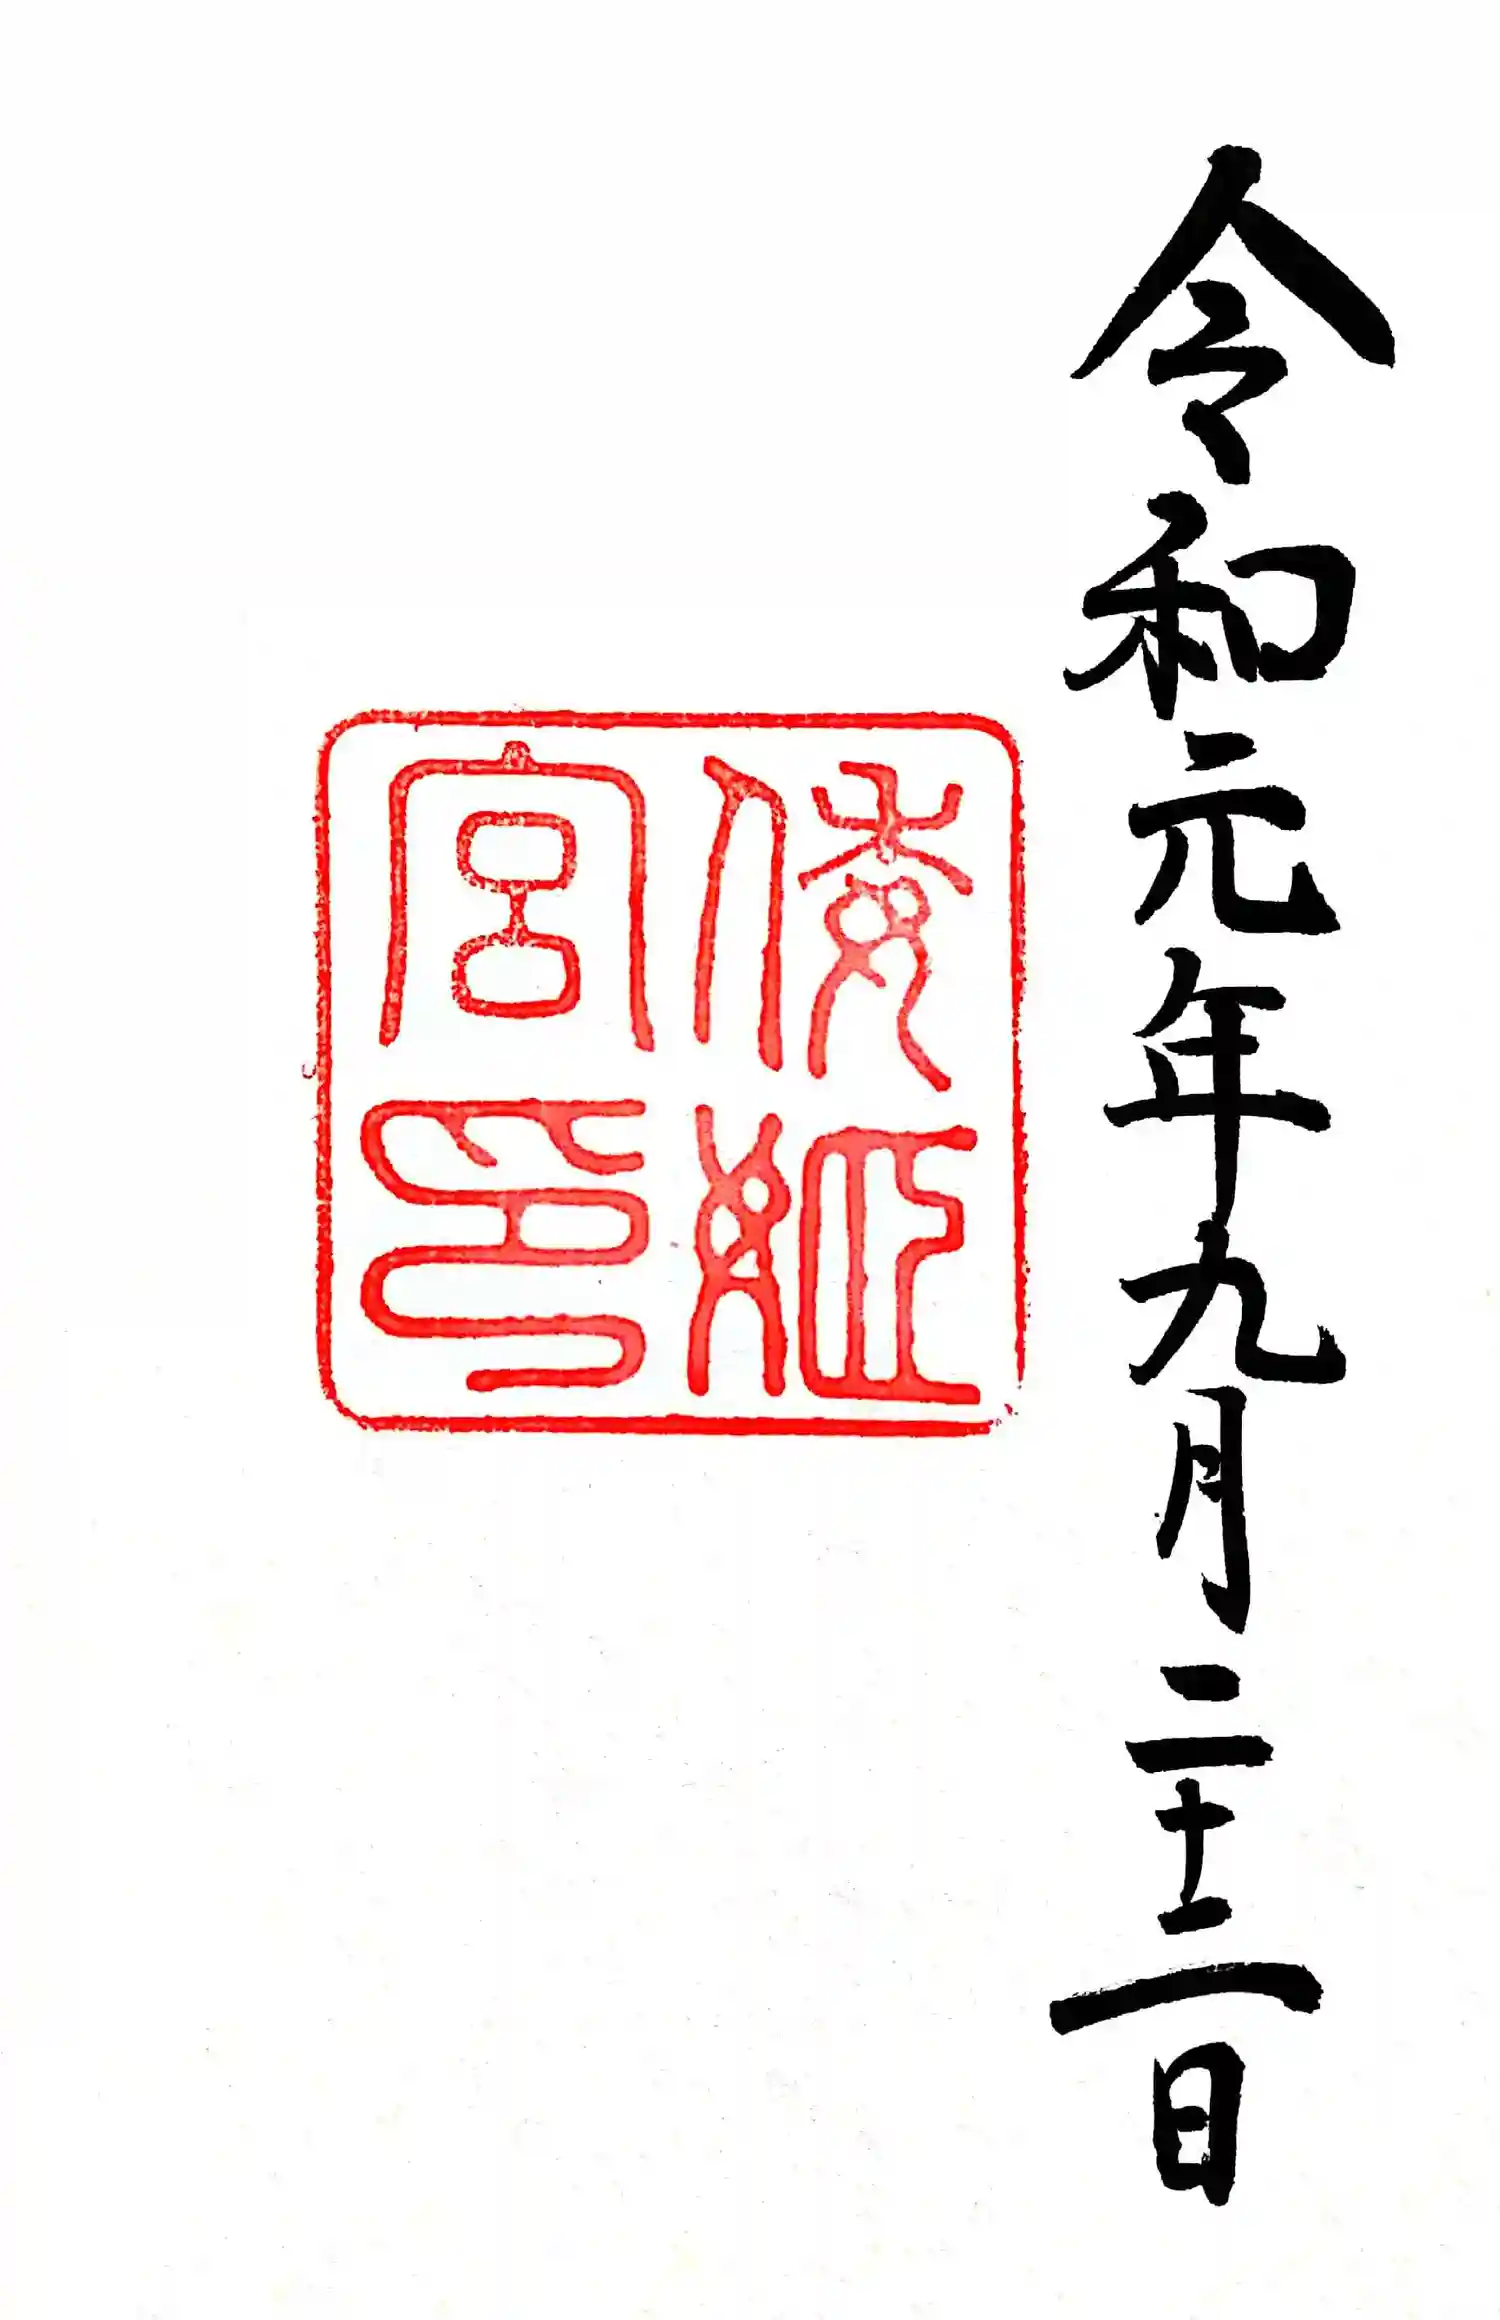 令和元年九月二十二日
倭姫
宮印